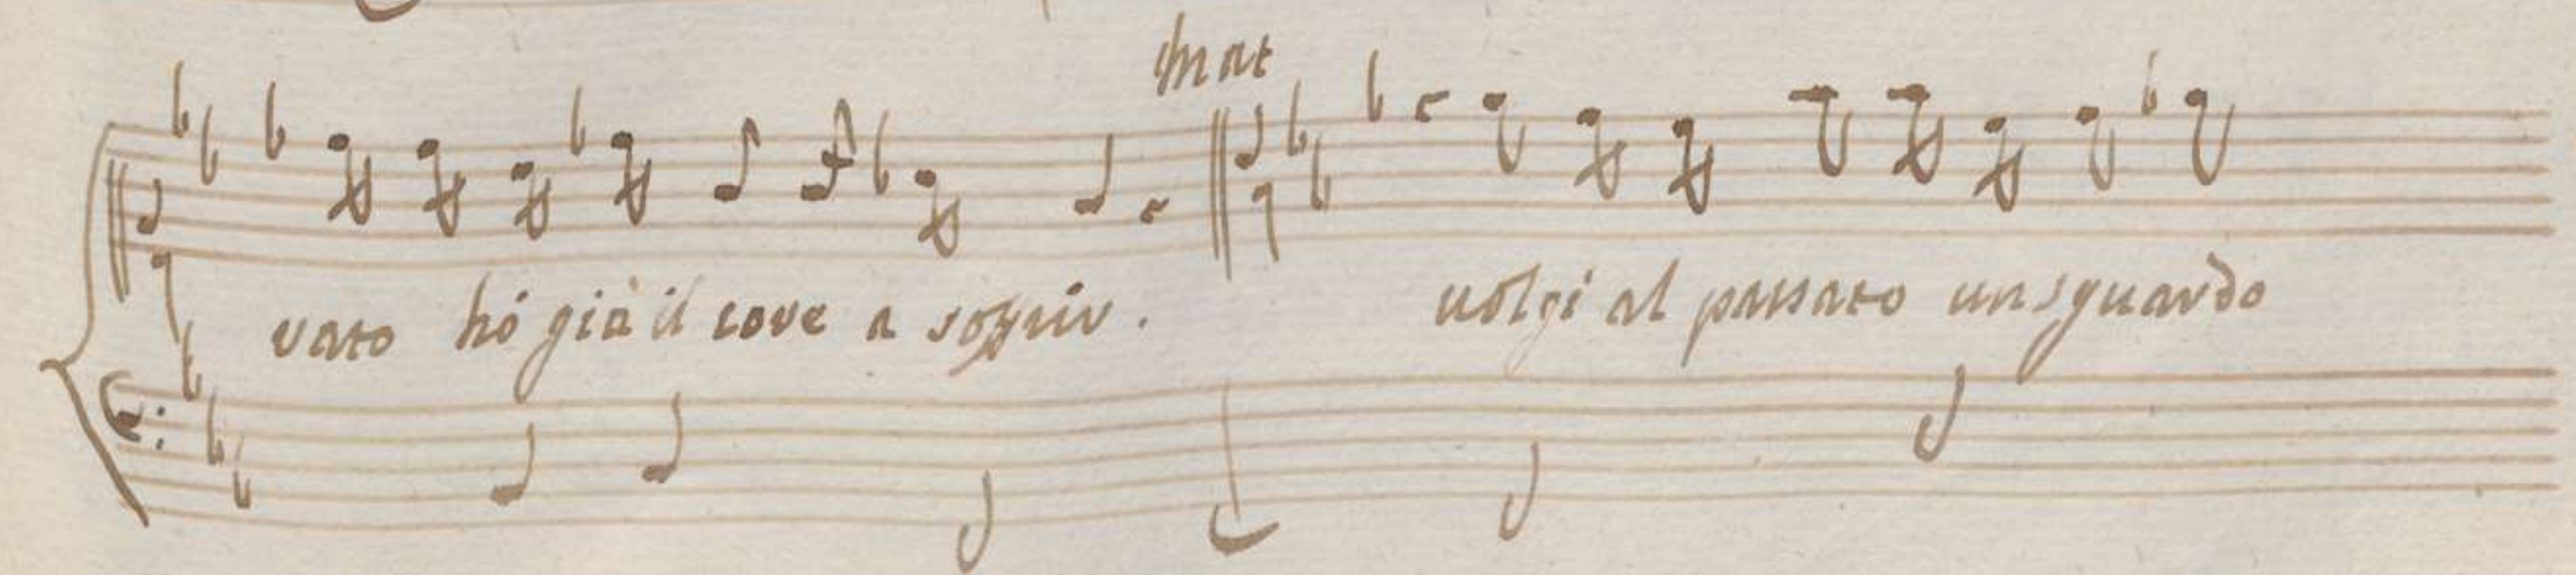 mat
vato hó già il core a soffrir. volgi al passato un sguardo